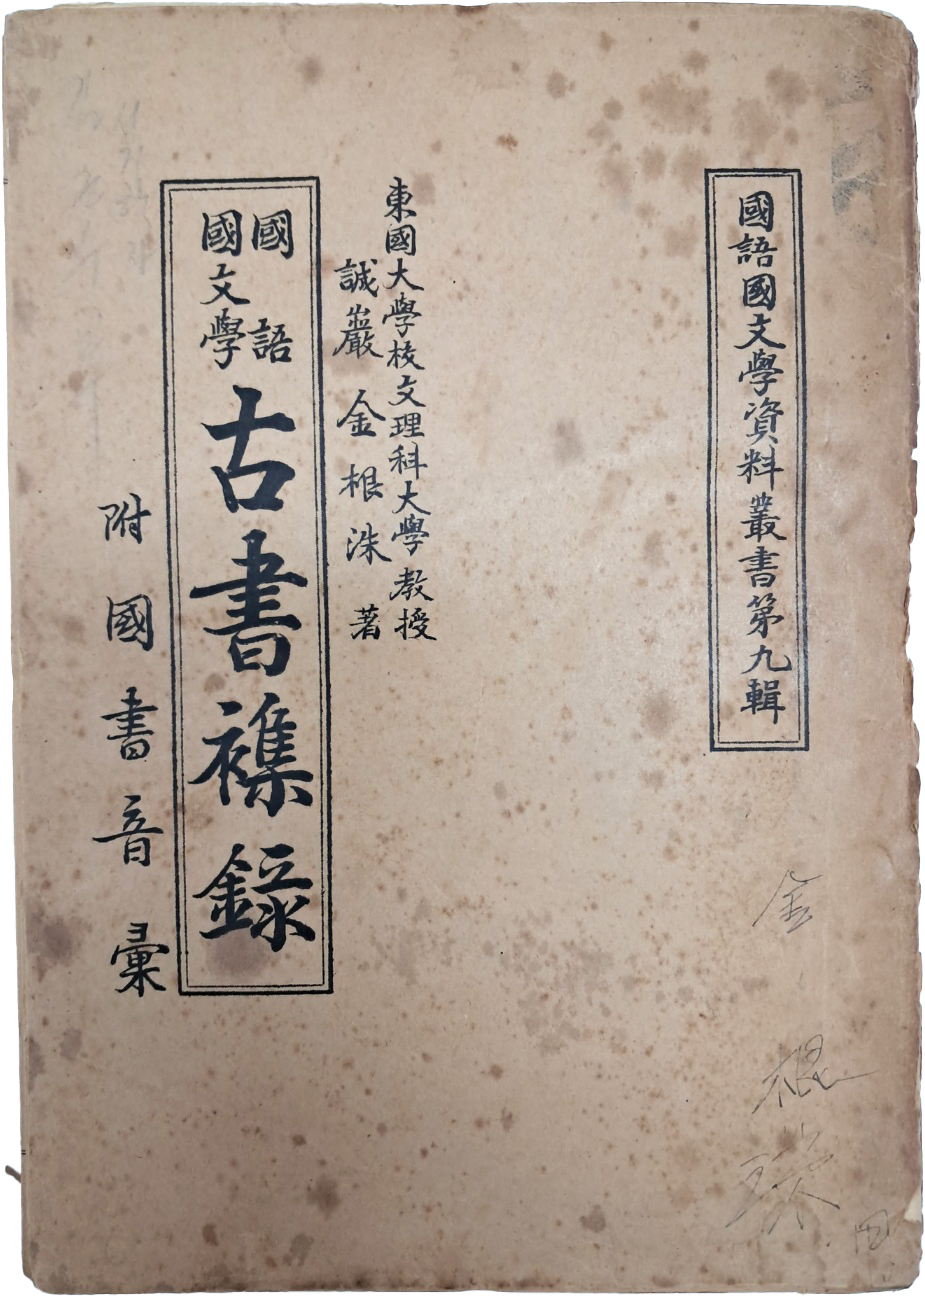 國語國文學資料叢書第九輯
東國大學校文理科大學教授
誠巖 金根洙 著
國語
國文學
古書襍錄
附國書音彙
金